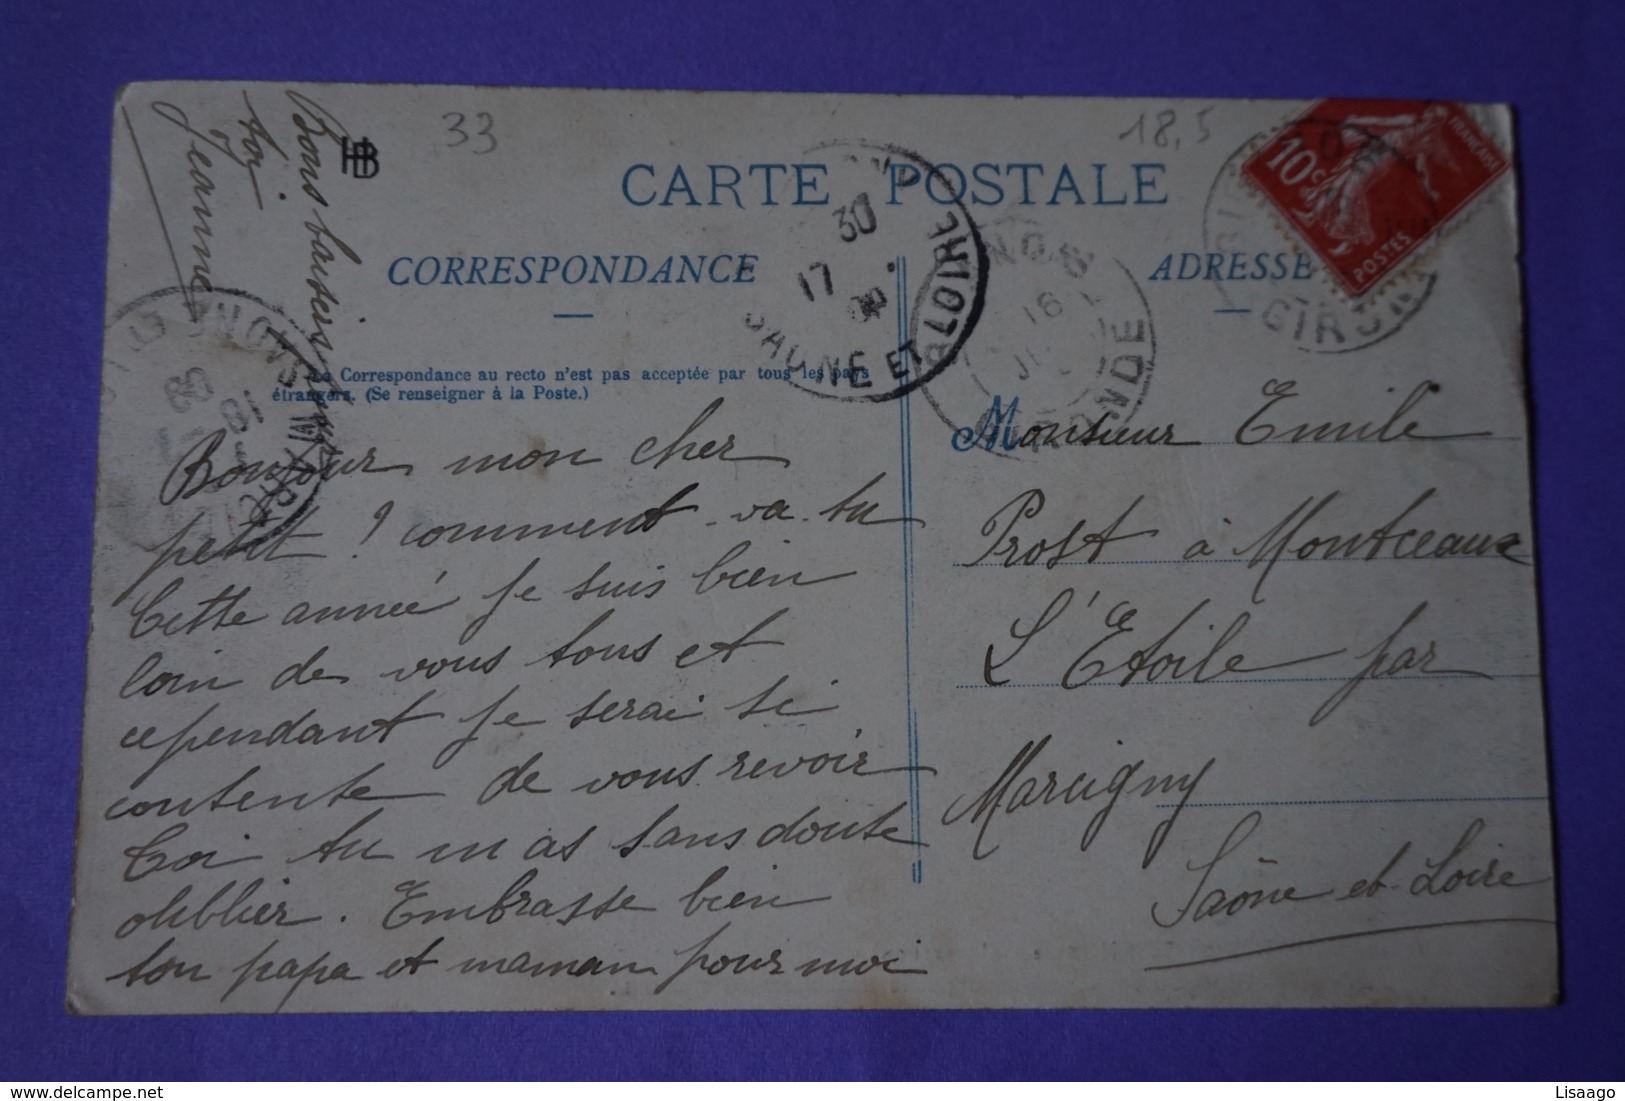 33
18,5
HB
CARTE POSTALE
CORRESPONDANCE
ADRESSE
La Correspondance au recto n'est pas acceptée par tous les pays
étrangers. (Se renseigner à la Poste.)
Bonjour mon cher
petit ! comment va tu
Cette année je suis bien
loin de vous tous et
cependant je serai si
contente de vous revoir
Toi tu m as sans doute
oublier. Embrasse bien
ton papa et maman pour moi
Bons baisers pour
toi
Jeanne
Monsieur Emile
Prost à Montceaux
L'Etoile par
Marcigny
Saône et Loire
10c
POSTES
FRANÇAISE
GIRONDE
16
GIRONDE
30
17
SAONE ET LOIRE
18
08
SAONE ET LOIRE
delcampe.net
Lisaago